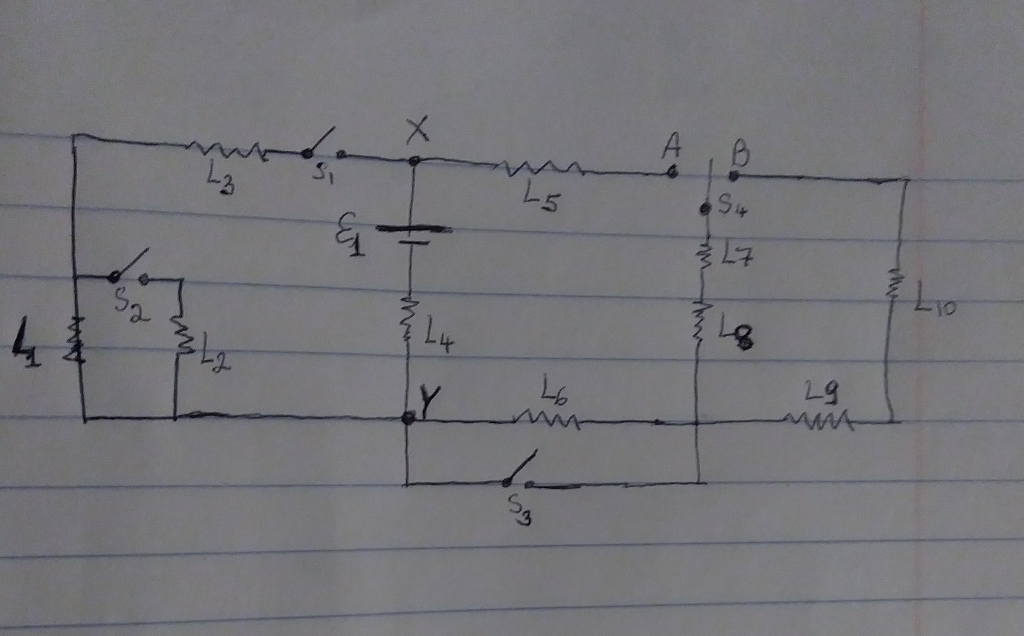 X
A
B
L3
S1
L5
S4
ε1
L7
S2
L10
L1
L2
L4
L8
Y
L6
L9
S3